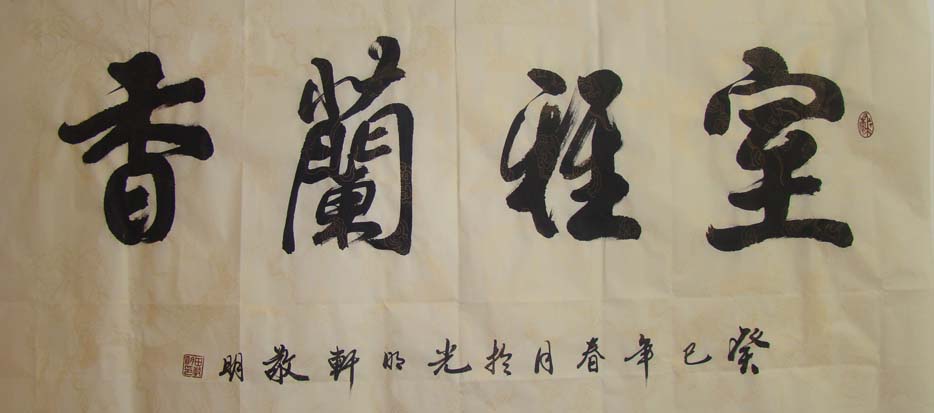 室雅蘭香
癸巳年春月於光明軒敬明